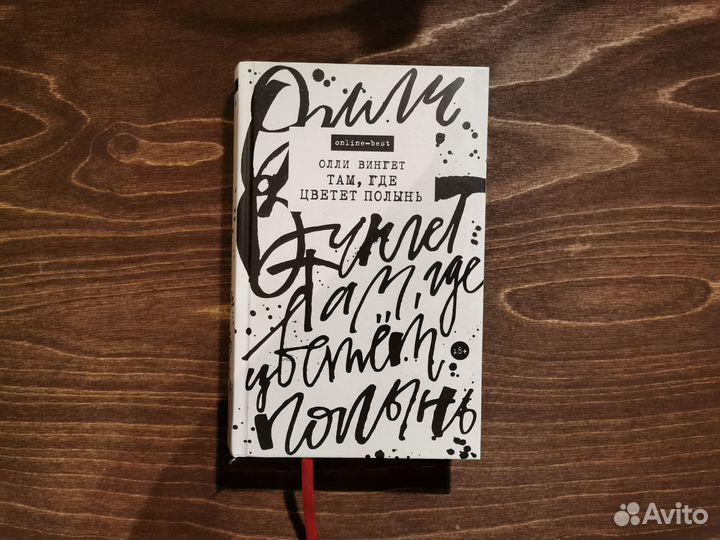 Олли
online-best
ОЛЛИ ВИНГЕТ
ТАМ, ГДЕ
ЦВЕТЕТ ПОЛЫНЬ
Вингет
Там, где
цветёт
полынь
18+
Avito